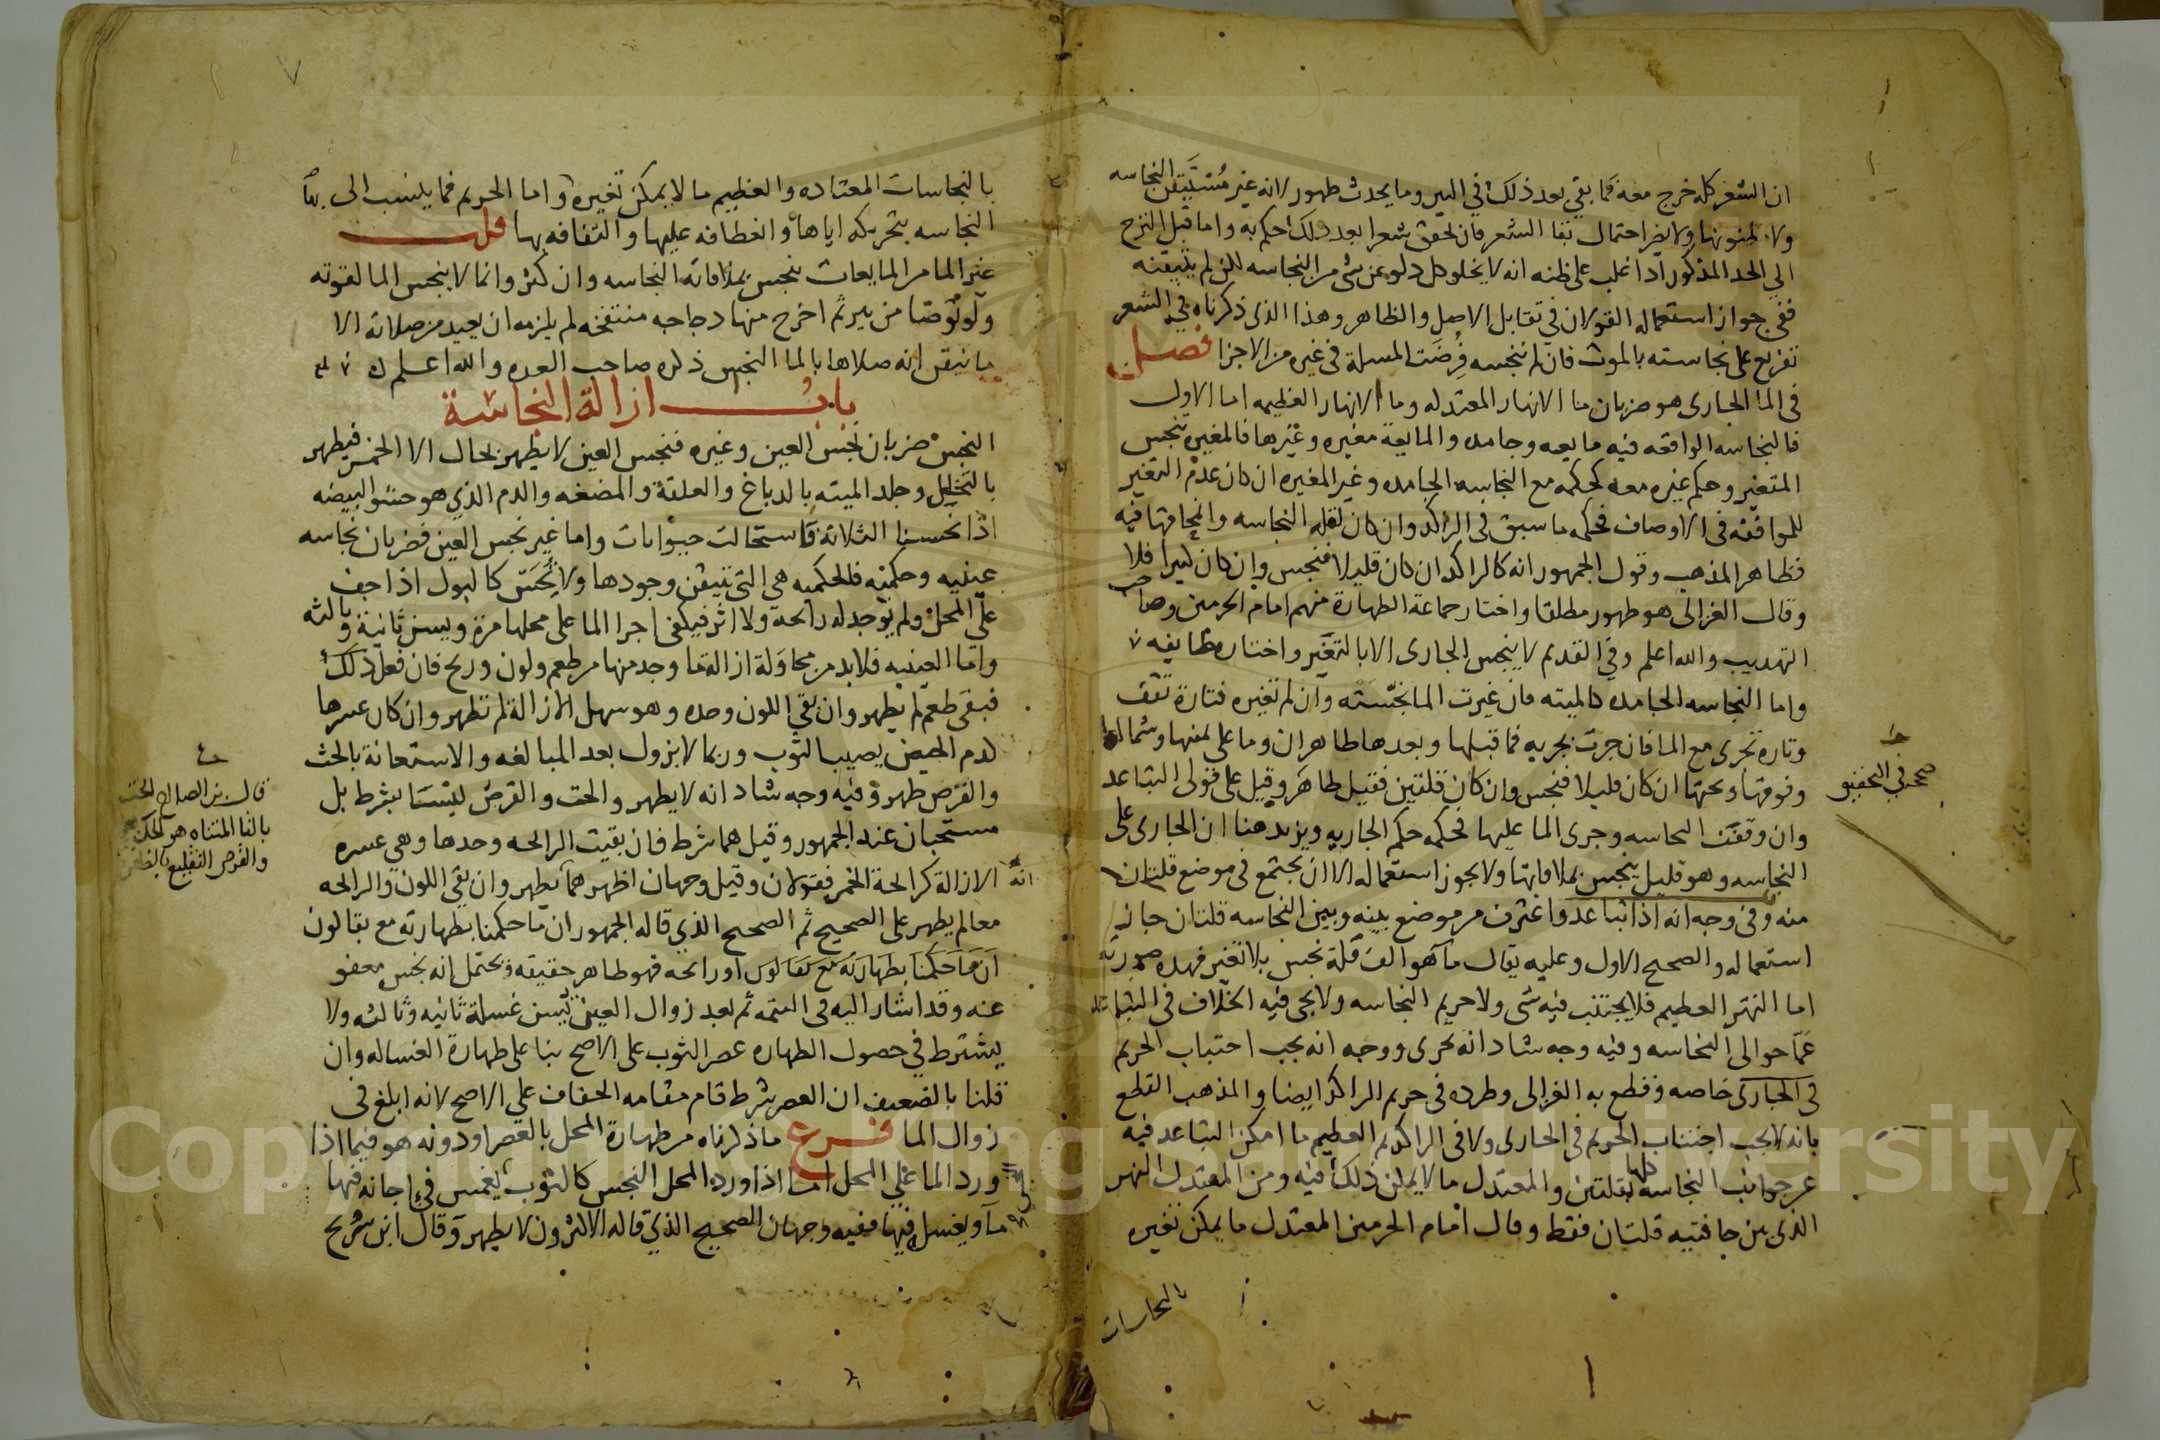 ان الشعر كله خرج معه فما بقي بعد ذلك في البير وما يحدث طهور لانه غير مستيقن النجاسه
ولا مظنونها ولا يضر احتمال بقا الشعر فان تحقق شعرا بعد ذلك حكم به واما قبل النزح
الي الحد المذكور اذا غلب على ظنه انه لا يخلو كل دلو عن شي من النجاسه لكن لم يتيقنه
ففي جواز استعماله القولان في تقابل الاصل والظاهر وهذا الذي ذكرناه في الشعر
تفريع على نجاسته بالموت فان لم ننجسه فرضت المسلة في غيره من الاجزا فصل
في الما الجاري هو ضربان ما الانهار المعتدله وما الانهار العظيمه اما الاول
فالنجاسه الواقعه فيه مايعه وجامده والمايعة مغيره وغيرها فالمغيره تنجس
المتغير وحكم غيره معه كحكمه مع النجاسه الجامده وغير المغيره ان كان عدم التغير
للموافقه في الاوصاف فحكمه ما سبق في الراكد وان كان لقله النجاسه وانمحاقها فيه
فظاهر المذهب وقول الجمهور انه كالراكد ان كان قليلا فنجس وان كان كثيرا فلا
وقال الغزالي هو طهور مطلقا واختار جماعة الطهارة منهم امام الحرمين وصاحب
التهذيب والله اعلم وفي القديم لا ينجس الجاري الا بالتغير واختاره طايفه
واما النجاسه الجامده كالميته فان غيرت الما نجسته وان لم تغيره فتارة تقف
وتاره تجري مع الما فان جرت بجريه فما قبلها وبعدها طاهران وما على يمينها وشمالها
وفوقها وتحتها ان كان قليلا فنجس وان كان قلتين فقيل طاهر وقيل على قولي التباعد
وان وقفت النجاسه وجرى الما عليها فحكمه حكم الجاريه ويزيد هنا ان الجاري على
النجاسه وهو قليل ينجس بملاقاتها ولا يجوز استعماله الا ان يجتمع في موضع قلتان
منه وفي وجه انه اذا تباعد واغترف من موضع بينه وبين النجاسه قلتان جاز
استعماله والصحيح الاول وعليه يقال ما هو الف قلة نجس بلا تغير فهذه صورته
اما النهر العظيم فلا يجتنب فيه شي ولا حريم النجاسه ولا يجي فيه الخلاف في التباعد
عما حوالي النجاسه وفيه وجه شاذ انه يجري ووجه انه يجب اجتناب الحريم
في الجاري خاصه وقطع به الغزالي وطرده في حريم الراكد ايضا والمذهب القطع
بانه لا يجب اجتناب الحريم في الجاري ولا في الراكد ثم العظيم ما امكن التباعد فيه
عن جوانب النجاسه كلها بقلتين والمعتدل ما لا يمكن ذلك فيه ومن المعتدل النهر
الذي بين حافتيه قلتان فقط وقال امام الحرمين المعتدل ما يمكن تغيره
بالنجاسات
صح في التحقيق
بالنجاسات المعتاده والعظيم ما لا يمكن تغيره واما الحريم فما ينسب الى
النجاسه بتحريكه اياها وانعطافه عليها والتفافه بها قلت
غير الما من المايعات ينجس بملاقاة النجاسه وان كثر وانما لا ينجس الما لقوته
ولو توضا من بير ثم اخرج منها دجاجه منتفخه لم يلزمه ان يعيد من صلاته الا
ما تيقن انه صلاها بالما النجس ذكره صاحب العده والله اعلم
باب ازالة النجاسة
النجس ضربان نجس العين وغيره فنجس العين لا يطهر بحال الا الخمر فيطهر
بالتخلل وجلد الميته بالدباغ والعلقة والمضغه والدم الذي هو حشو البيضه
اذا نجسنا الثلاثة فاستحالت حيوانات واما غير نجس العين فضربان نجاسه
عينيه وحكميه فالحكميه هي التي تتيقن وجودها ولا تحس كالبول اذا جف
على المحل ولم يوجد له رائحة ولا اثر فيكفي اجرا الما على محلها مرة ويسن ثانية وثالثه
واما العينيه فلابد من محاولة ازالة ما وجد منها من طعم ولون وريح فان فعل ذلك
فبقي طعم لم يطهر وان بقي اللون وحده وهو سهل الازالة لم تطهر وان كان عسرها
كدم الحيض يصيب الثوب وربما لا يزول بعد المبالغه والاستعانة بالحت
والقرص طهر وفيه وجه شاذ انه لا يطهر والحت والقرص ليستا بشرط بل
مستحبان عند الجمهور وقيل هما شرط فان بقيت الرائحه وحدها وهي عسره
الازالة كرائحة الخمر فقولان وقيل وجهان اظهرهما يطهر وان بقي اللون والرائحه
معا لم يطهر على الصحيح ثم الصحيح الذي قاله الجمهور ان ما حكمنا بطهارته مع بقا لون
ان ما حكمنا بطهارته مع بقا لون او رائحه فهو طاهر حقيقه ويحتمل انه نجس معفو
عنه وقد اشار اليه في التتمه ثم بعد زوال العين تسن غسلة ثانيه وثالثه ولا
يشترط في حصول الطهاره عصر الثوب على الاصح بنا على طهارة الغساله وان
قلنا بالضعيف ان العصر شرط قام مقامه الجفاف علي الاصح لانه ابلغ في
زوال الما فرع ما ذكرناه من طهارة المحل بالعصر او دونه هو فيما اذا
ورد الما علي المحل اما اذا ورد المحل النجس كالثوب يغمس في اجانه فيها
ما ويغسل فيها ففيه وجهان الصحيح الذي قاله الاكثرون لا يطهر وقال ابن سريج
قال ابن الصلاح الحت
بالتا المثناه هو الحك
والقرص التقليع بالظفر
Copyright King Saud University